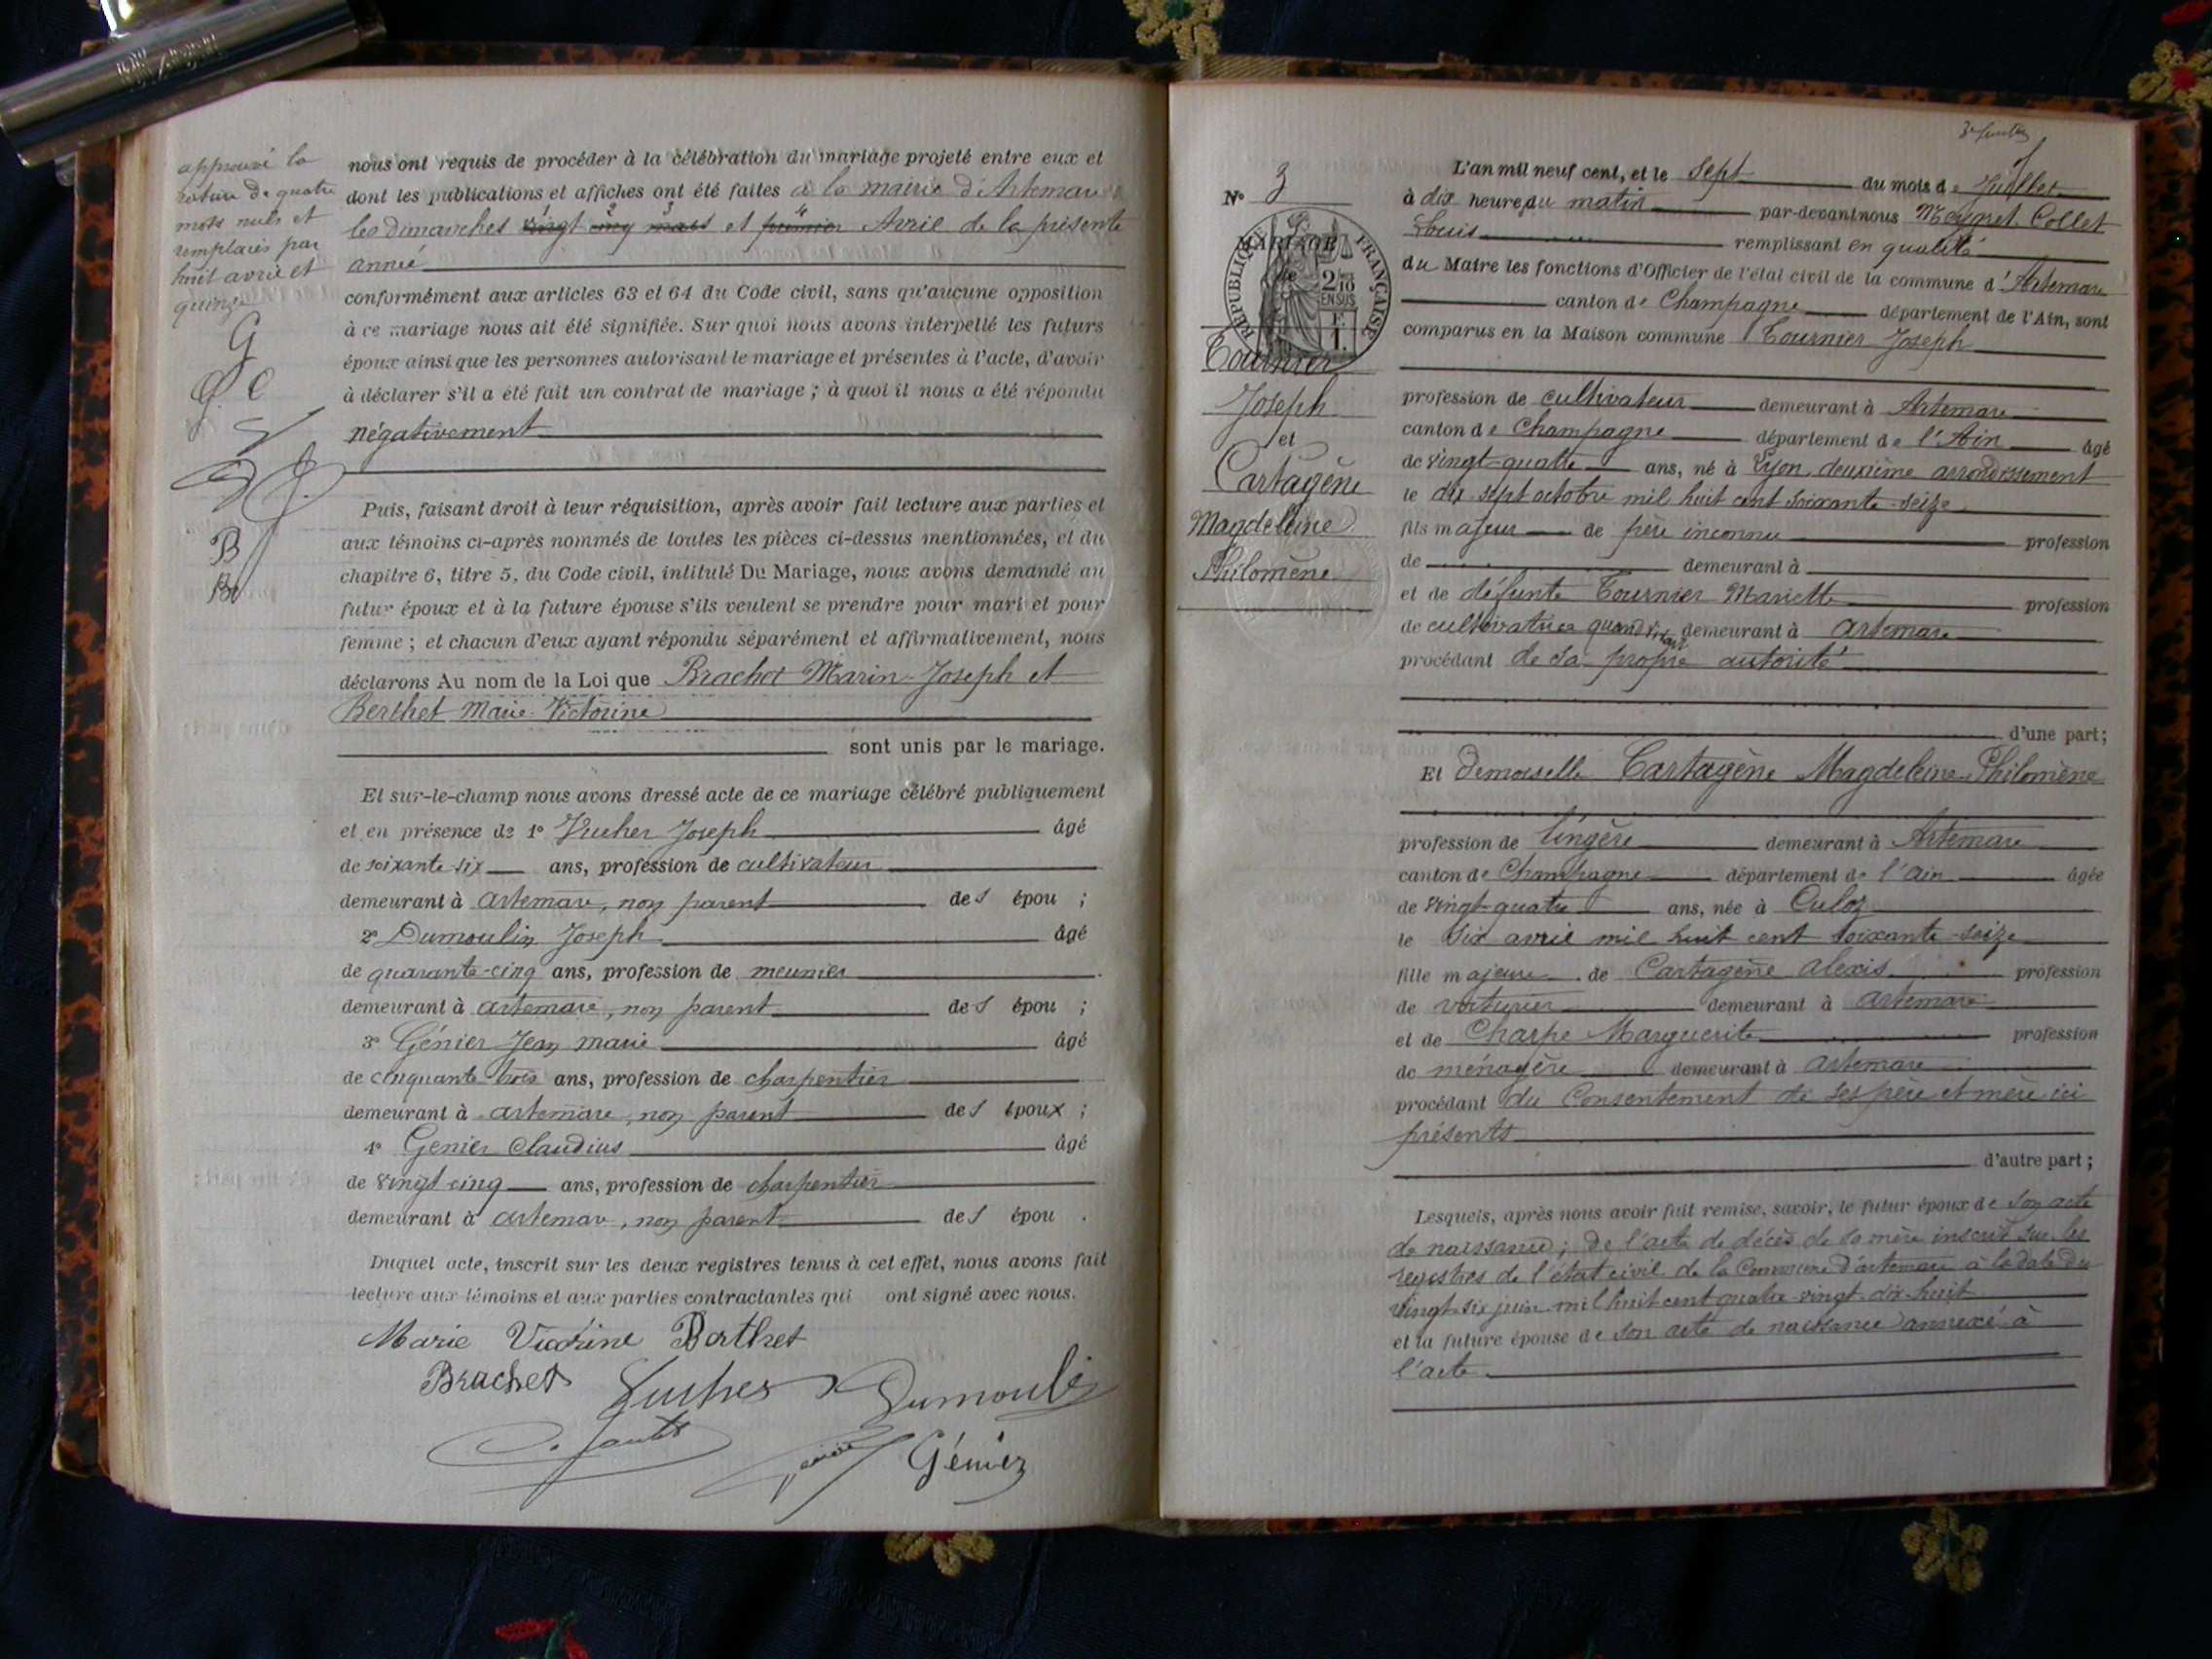 approuvé la
rature de quatre
mots nuls et
remplacés par
huit avril et
quinze
G
B
nous ont requis de procéder à la célébration du mariage projeté entre eux et
dont les publications et affiches ont été faites à la mairie d'Artemare
les dimanches vingt cinq mars et premier Avril de la présente
année
conformément aux articles 63 et 64 du Code civil, sans qu'aucune opposition
à ce mariage nous ait été signifiée. Sur quoi nous avons interpellé les futurs
époux ainsi que les personnes autorisant le mariage et présentes à l'acte, d'avoir
à déclarer s'il a été fait un contrat de mariage ; à quoi il nous a été répondu
négativement
Puis, faisant droit à leur réquisition, après avoir fait lecture aux parties et
aux témoins ci-après nommés de toutes les pièces ci-dessus mentionnées, et du
chapitre 6, titre 5, du Code civil, intitulé Du Mariage, nous avons demandé au
futur époux et à la future épouse s'ils veulent se prendre pour mari et pour
femme ; et chacun d'eux ayant répondu séparément et affirmativement, nous
déclarons Au nom de la Loi que Brachet Marin-Joseph et
Berthet Marie Victorine
sont unis par le mariage.
Et sur-le-champ nous avons dressé acte de ce mariage célébré publiquement
et en présence de 1° Vucher Joseph âgé
de soixante six ans, profession de cultivateur
demeurant à artemare, non parent des épou ;
2° Dumoulin Joseph âgé
de quarante-cinq ans, profession de meunier
demeurant à artemare, non parent des épou ;
3° Génier Jean marie âgé
de cinquante trois ans, profession de charpentier
demeurant à artemare, non parent des époux ;
4° Genier Claudius âgé
de vingt cinq ans, profession de charpentier
demeurant à artemare, non parent des épou .
Duquel acte, inscrit sur les deux registres tenus à cet effet, nous avons fait
lecture aux témoins et aux parties contractantes qui ont signé avec nous.
Marie Victorine Berthet
Brachet Vucher Dumoulin
Génier
N° 3
RÉPUBLIQUE FRANÇAISE
2/10
EN SUS
F.
1.
Tournier
Joseph
et
Cartagène
Magdeleine
Philomène
7
L'an mil neuf cent, et le sept du mois de Juillet
à dix heures du matin par-devant nous Meygret Collet
Louis remplissant en qualité
du Maire les fonctions d'Officier de l'état civil de la commune d'Artemare
canton de Champagne département de l'Ain, sont
comparus en la Maison commune Tournier Joseph
profession de cultivateur demeurant à Artemare
canton de Champagne département de l'Ain âgé
de vingt-quatre ans, né à Lyon, deuxième arrondissement
le dix sept octobre mil huit cent soixante-seize
fils majeur de père inconnu profession
de demeurant à
et de défunte Tournier Mariette profession
de cultivatrice quand vivait demeurant à artemare
procédant de sa propre autorité
d'une part;
Et Demoiselle Cartagène Magdeleine Philomène
profession de lingère demeurant à Artemare
canton de Champagne département de l'Ain âgée
de vingt-quatre ans, née à Culoz
le six avril mil huit cent soixante-seize
fille majeure de Cartagène Alexis profession
de voiturier demeurant à artemare
et de Charpe Marguerite profession
de ménagère demeurant à artemare
procédant du Consentement de ses père et mère ici
présents
d'autre part ;
Lesquels, après nous avoir fait remise, savoir, le futur époux de son acte
de naissance; de l'acte de décès de sa mère inscrit sur les
registres de l'état civil de la Commune d'artemare à la date du
vingt-six juin mil huit cent quatre-vingt-dix-huit
et la future épouse de son acte de naissance annexé à
l'acte